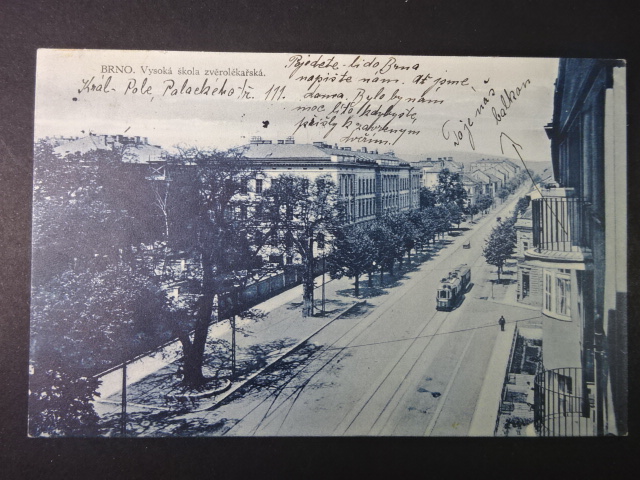 BRNO. Vysoká škola zvěrolékařská.
Král-Pole, Palackého tř. 111.
Pojedete-li do Brna
napište nám. Ať jsme
doma. Bylo by nám
moc líto kdybyste
přišly k zavřeným
dveřím!
To je náš
balkon